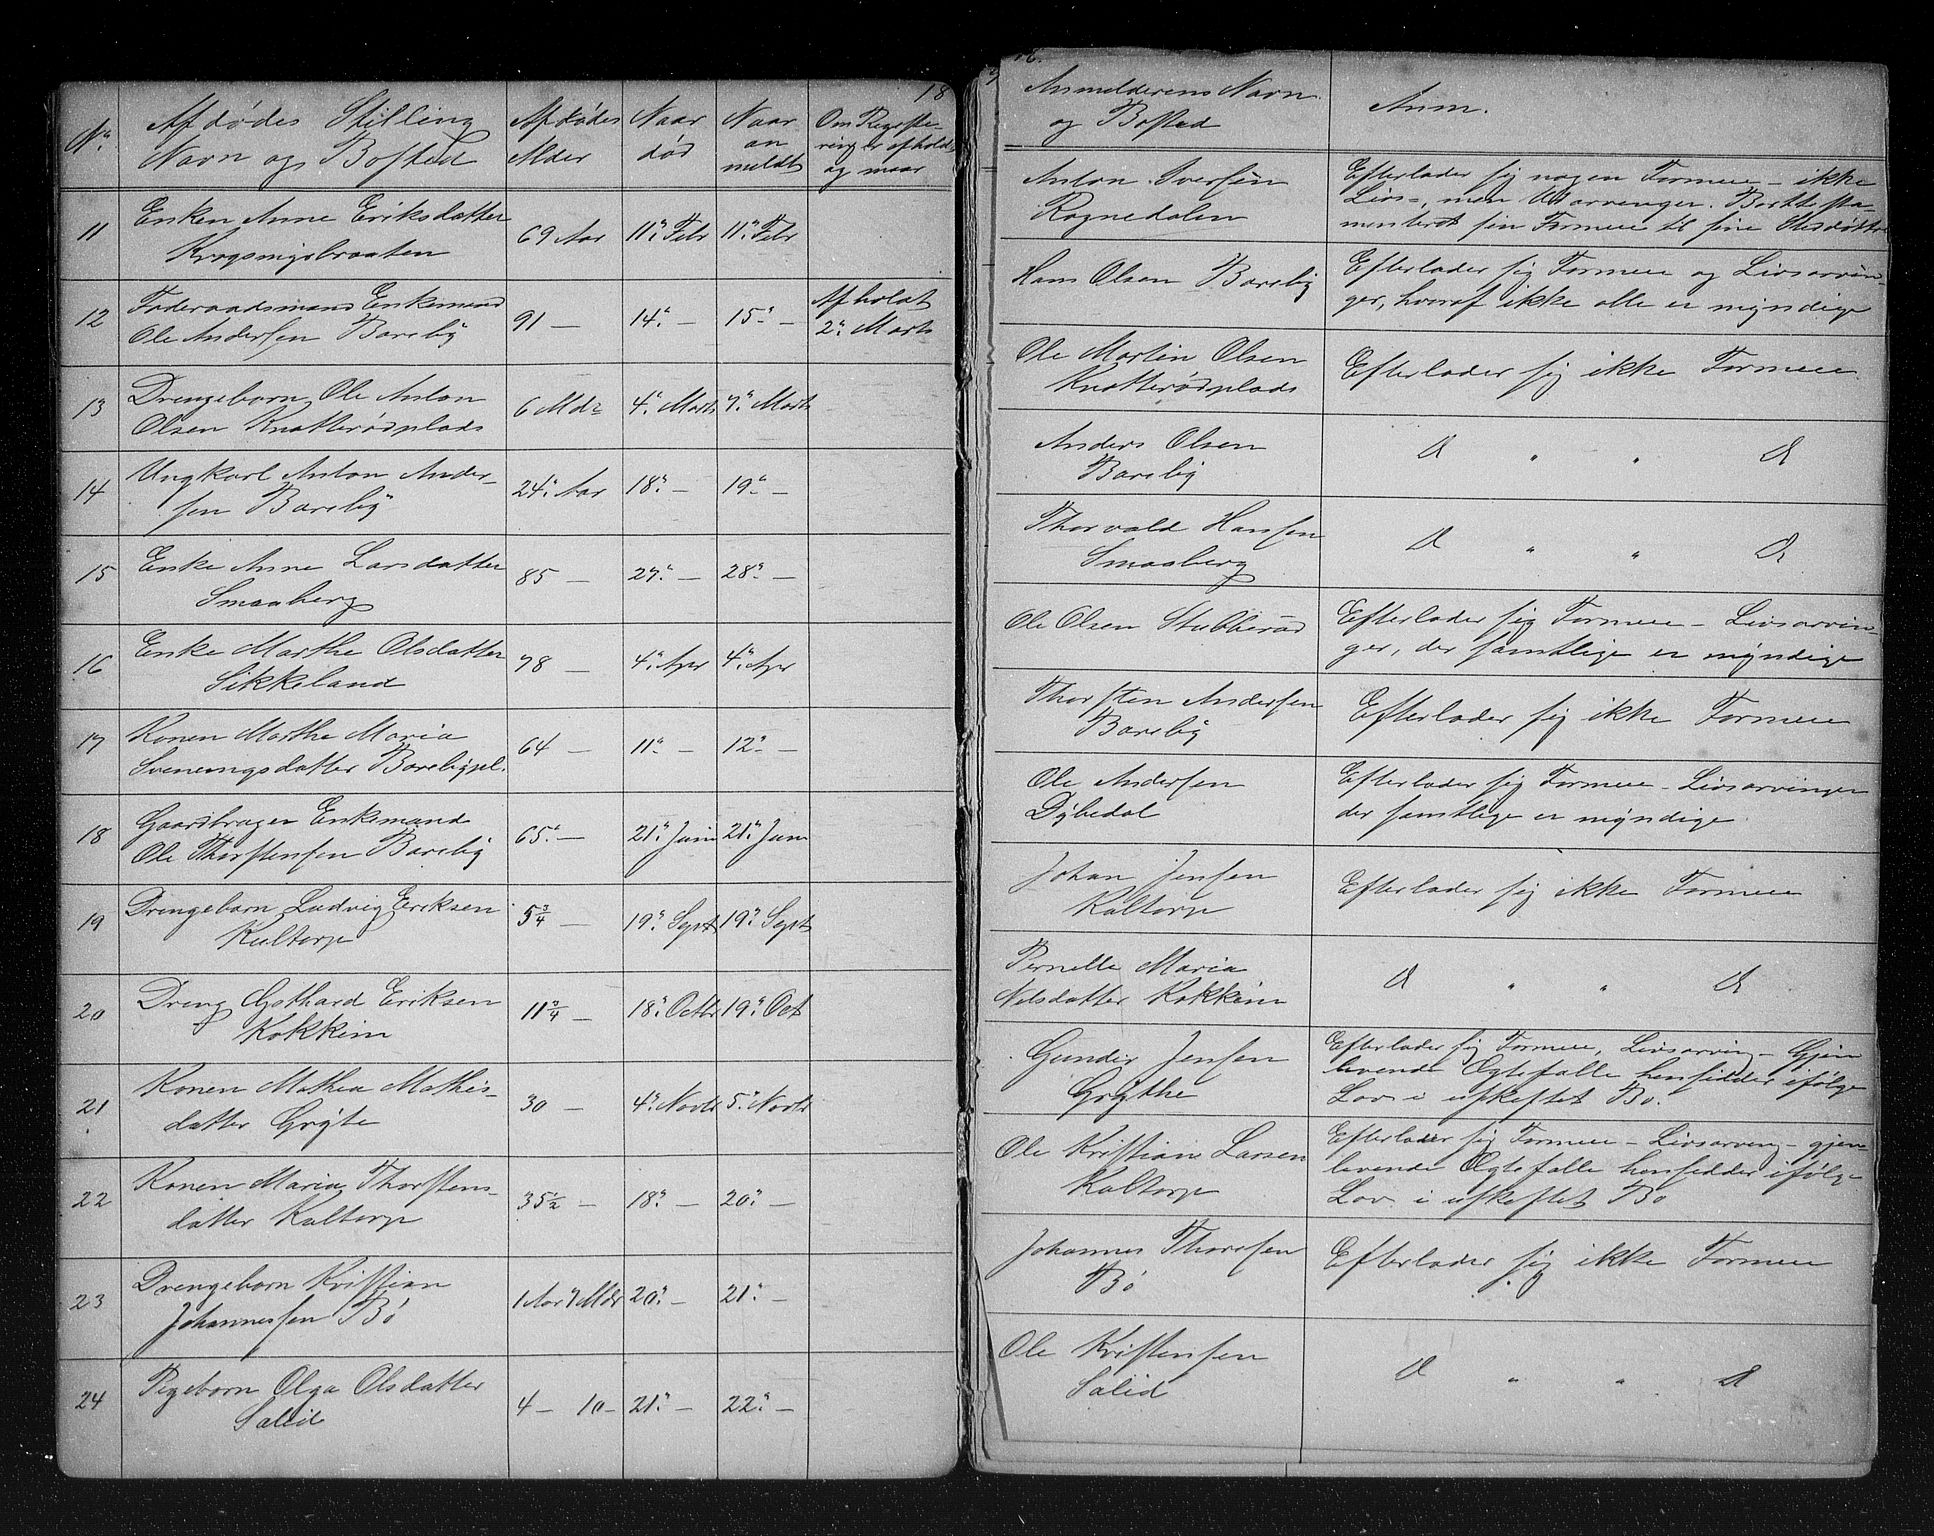 18
No.
Afdødes Stilling
Navn og Bosted
Afdødes
Alder
Naar
død
Naar
an
meldt
Om Registe-
ring er afholdt
og naar
11
Enken Anne Eriksdatter
69 Aar 11" Febr 11" Febr
12
Føderaadsmand Enkemand
Ole Andersen Bareby
91 — 14" — 15" —
Afholdt
2" Marts
13
Drengebarn Ole Anton
Olsen Knatterødplads
6 Mdr 4" Marts 7" Marts
14
Ungkarl Anton Ander-
sen Bareby
24" Aar 18" — 19" —
15
Enke Anne Larsdatter
Smaaberg
85 — 27" — 28" —
16
Enke Marthe Olsdatter
Sikkeland
78 — 4" Apr 4" Apr
17
Konen Marthe Maria
Sveningsdatter Barebypl.
64 — 11" — 12" —
18
Gaardbruger Enkemand
Ole Thorstensen Bareby
65" — 21" Juni 21" Juni
19
Drengebarn Ludvig Eriksen
Kaltorp
5 3/4 — 19" Sept 19" Sept
20
Dreng Gothard Eriksen
Kokkim
11 3/4 — 18" Octbr 19" Oct
21
Konen Mathea Mathis-
datter Gryte
30 — 4" Novbr 5" Novbr
22
Konen Maria Thorstens-
datter Kaltorp
35 1/2 — 18" — 20" —
23
Drengebarn Kristian
Johannessen Bö
1 Aar 7 Mdr 20" — 21" —
24
Pigebarn Olga Olsdatter
Salid
4 — 10 — 21" — 22" —
Anmelderens Navn
og Bosted
Anm.
Anton Iversen
Rognedalen
Efterlader sig nogen Formue - ikke
Livs-, men Udarvinger. Borttesta-
menteret sin Formue til sine
Hans Olsen Bareby
Efterlader sig Formue og Livsarvin-
ger, hvoraf ikke alle er myndige
Ole Martin Olsen
Knatterødplads
Efterlader sig ikke Formue.
Anders Olsen
Bareby
D " " D
Thorvald Hansen
Smaaberg
D " " D
Ole Olsen Stubberød
Efterlader sig Formue - Livsarvin-
ger, der samtlige er myndige
Thorsten Andersen
Bareby
Efterlader sig ikke Formue
Ole Andersen
Dybedal
Efterlader sig Formue - Livsarvinger
der samtlige er myndige
Johan Jensen
Kaltorp
Efterlader sig ikke Formue
Pernelle Maria
Nilsdatter Kokkim
D " " D
Gunder Jensen
Grythe
Efterlader sig Formue, Livsarving - Gjen
levende Ægtefælle hensidder ifølge
Lov i uskiftet Bo.
Ole Kristian Larsen
Kaltorp
Efterlader sig Formue - Livsarving - gjen-
levende Ægtefælle hensidder ifølge
Lov i uskiftet Bo
Johannes Thoresen
Bö
Efterlader sig ikke Formue
Ole Kristensen
Salid
D " " D